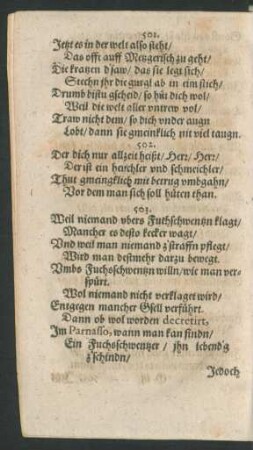 501.
Jetzt es in der welt also steht/
Das offt auff Metzgerisch zu geht/
Die kratzen d'saw/ das sie legt sich/
Stechn jhr die gurgl ab in eim stich/
Drumb bistu gscheid/ so hüt dich wol/
Weil die welt aller vntrew vol/
Traw nicht dem/ so dich vnder augn
Lobt/ dann sie gmeinklich nit viel taugn.
502.
Der dich nur allzeit heißt/ Herr/ Herr/
Der ist ein heuchler und schmeichler/
Thut gmeingklich mit betrug vmbgahn/
Vor dem man sich soll hüten than.
503.
Weil niemand vbers Fuchschwentzn klagt/
Mancher es desto kecker wagt/
Vnd weil man niemand z'straffn pflegt/
Wird man destmehr darzu bewegt.
Vmbs Fuchsschwentzn willn/ wie man ver-
spürt.
Wol niemand nicht verklaget wird/
Entgegen mancher Gsell verführt.
Dann ob wol worden decretirt,
Im Parnasso, wann man kan findn/
Ein Fuchsschwentzer/ jhn lebend'g
z'schindn/
Jedoch